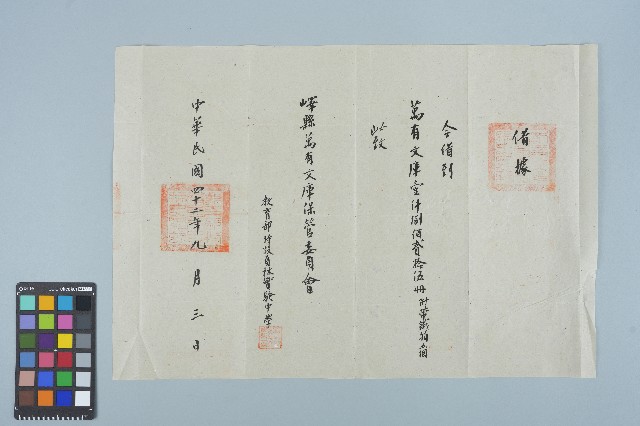 借據
今借到
萬有文庫壹仟捌佰貳拾伍冊附木箱
此致
嶧縣萬有文庫保管委員會
教育部特設員林實驗中學
中華民國四十二年九月三日